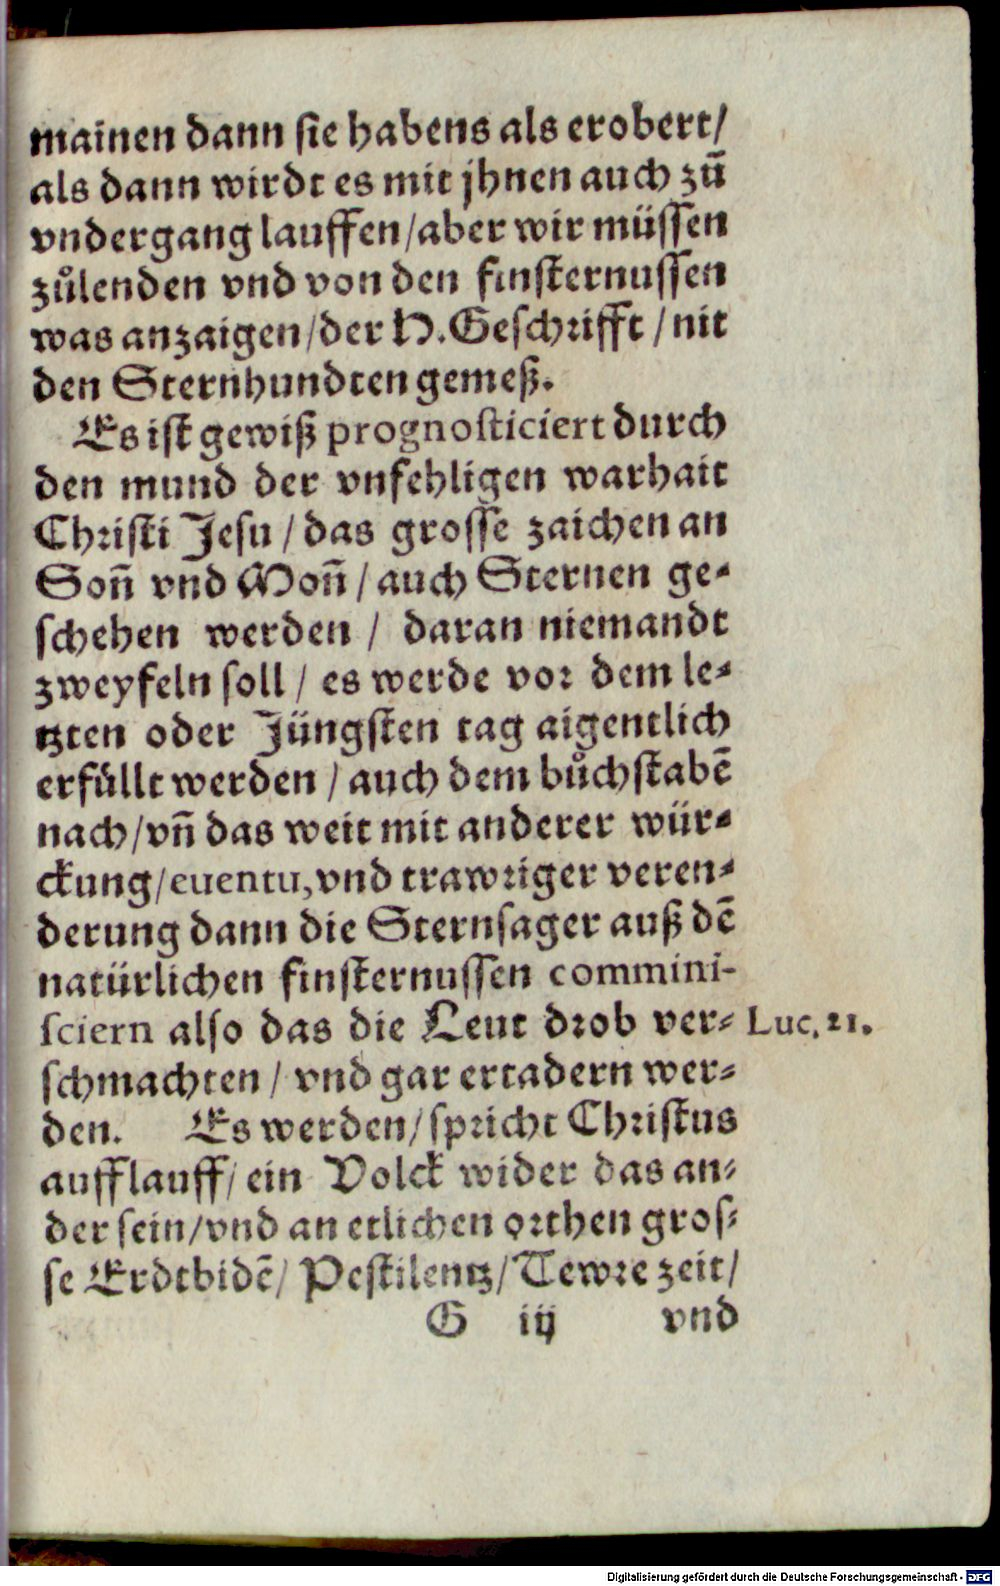 mainen dann sie habens als erobert/
als dann wirdt es mit jhnen auch zũ
vndergang lauffen/aber wir müssen
zůlenden vnd von den finsternussen
was anzaigen/der H.Geschrifft/nit
den Sternhundten gemeß.
Es ist gewiß prognosticiert durch
den mund der vnfehligen warhait
Christi Jesu/das grosse zaichen an
Soñ vnd Moñ/auch Sternen ge-
schehen werden/ daran niemandt
zweyfeln soll/ es werde vor dem le-
tzten oder Jüngsten tag aigentlich
erfüllt werden/auch dem bůchstabẽ
nach/vñ das weit mit anderer wür-
ckung/euentu,vnd trawriger veren-
derung dann die Sternsager auß dẽ
natürlichen finsternussen commini-
sciern also das die Leut drob ver- Luc. 21.
schmachten/ vnd gar ertadern wer-
den. Es werden/spricht Christus
aufflauff/ein Volck wider das an-
der sein/vnd an etlichen orthen gros-
se Erdtbidẽ/ Pestilentz/Tewre zeit/
G iij vnd
Digitalisierung gefördert durch die Deutsche Forschungsgemeinschaft - DFG